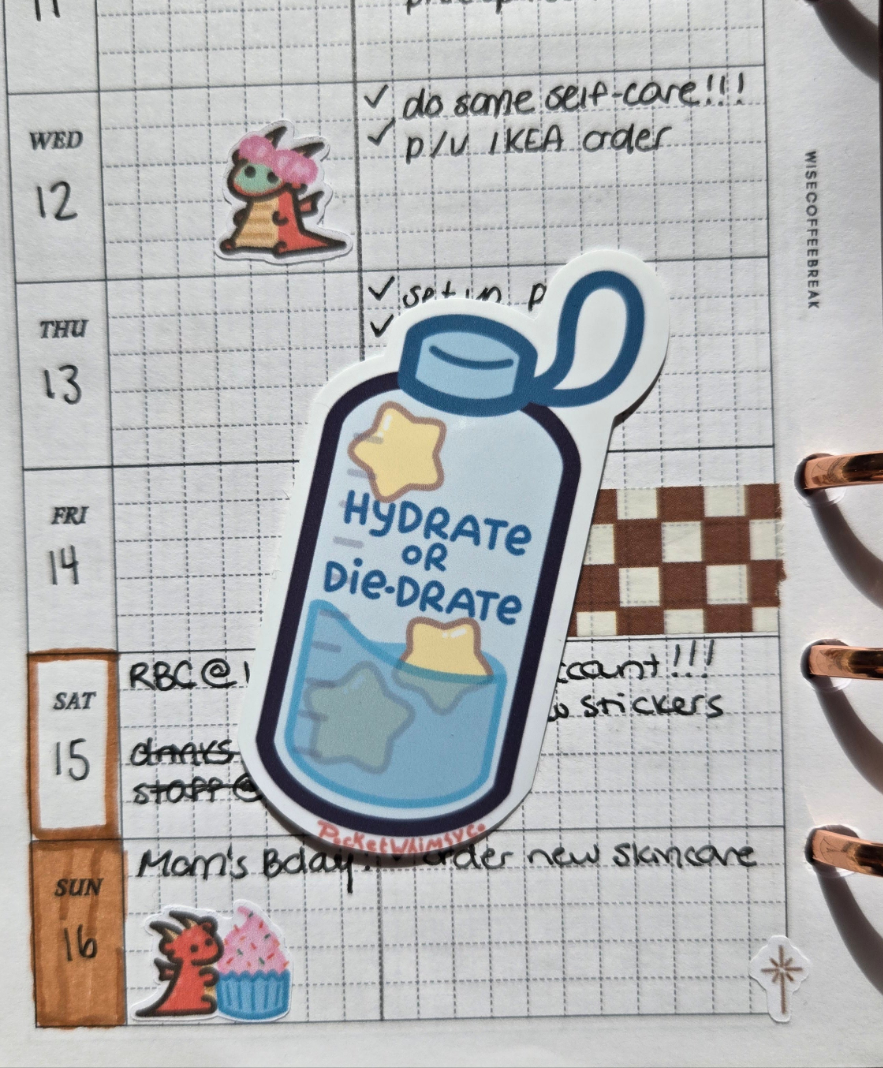 11
✓ do some self-care!!!
WED
✓ p/u IKEA order
12
WISECOFFEEBREAK
✓ set up
THU
✓
13
HYDRATE
OR
Die-DRATE
FRI
14
RBC @
account!!!
SAT
stickers
15
drinks
staff @
PocketWhimsyCo
Mom's Bday!!
✓ order new skincare
SUN
16